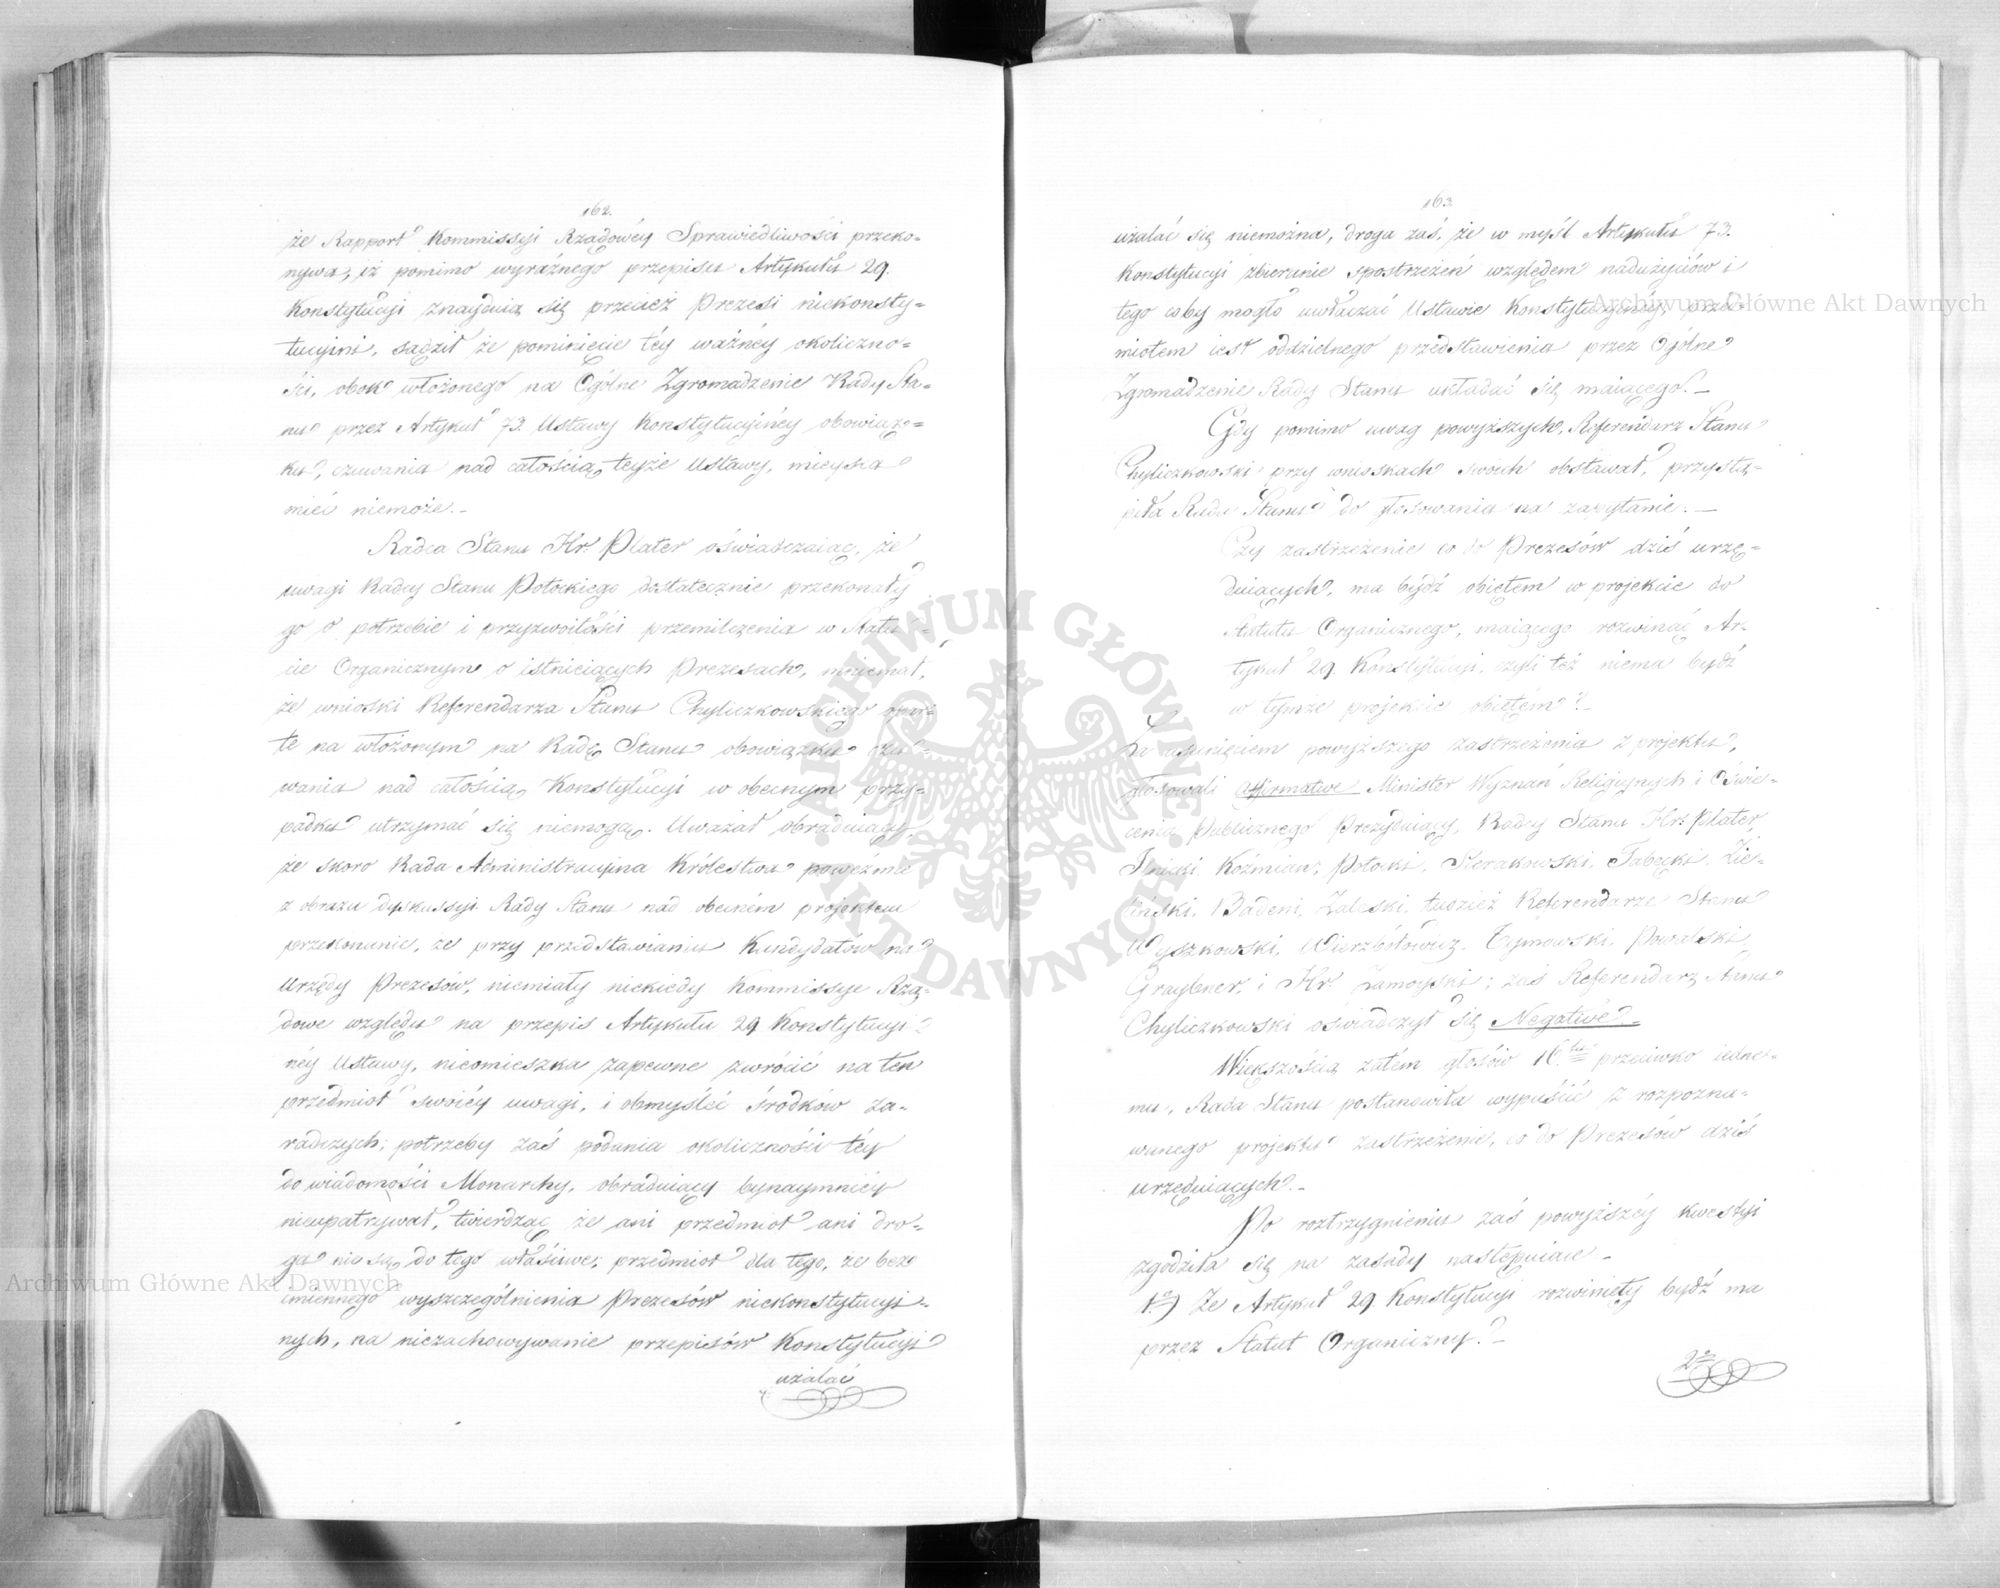 162.
że Rapport Kommissyi Rządowéy Sprawiedliwości przeko=
nywa, iż pomimo wyraźnego przepisu Artykułu 29.
Konstytucyi znayduią się przecież Prezesi niekonsty=
tucyini, sądził że pominięcie téy ważnéy okoliczno=
ści, obok włożonego na Ogólne Zgromadzenie Rady Sta=
nu przez Artykuł 73. Ustawy Konstytucyinéy obowiąz=
ku, czuwania nad całością teyże Ustawy, mieysca
mieć niemoże._
Radca Stanu Hr. Plater oświadczaiąc, że
uwagi Radcy Stanu Potockiego dostatecznie przekonały
go o potrzebie i przyzwoitości przemilczenia w Statu=
cie Organicznym o istnieiących Prezesach, mniemał,
że wnioski Referendarza Stanu Chyliczkowskiego opar=
te na włożonym na Radę Stanu obowiązku czu=
wania nad całością Konstytucyi w obecnym przy=
padku utrzymać się niemogą. Uważał obraduiący,
że skoro Rada Administracyina Królestwa poweźmie
z obrazu dyskussyi Rady Stanu nad obecném projektem
przekonanie, że przy przedstawianiu Kandydatów na
Urzędy Prezesów, niemiały niekiedy Kommissye Rzą=
dowe względu na przepis Artykułu 29 Konstytucyi=
néy Ustawy, nieomieszka zapewne zwrócić na ten
przedmiot swoiéy uwagi, i obmyśleć środków za=
radczych; potrzeby zaś podania okoliczności téy
do wiadomości Monarchy, obraduiący bynaymniéy
nieupatrywał, twierdząc że ani przedmiot ani dro=
ga nie są do tego właściwe; przedmiot dla tego, że bez
imiennego wyszczególnienia Prezesów niekonstytucyi=
nych, na niezachowywanie przepisów Konstytucyi
użalać
163.
użalać się niemożna, droga zaś, że w myśl Artykułu 73.
Konstytucyi zbieranie spostrzeżeń względem nadużyciów i
tego coby mogło uwłaczać Ustawie Konstytucyinéy, przed=
miotem iest oddzielnego przedstawienia przez Ogólne
Zgromadzenie Rady Stanu układać się maiącego._
Gdy pomimo uwag powyższych, Referendarz Stanu
Chyliczkowski przy wnioskach swoich obstawał, przystą=
piła Rada Stanu do głosowania na zapytanie._
Czy zastrzeżenie co do Prezesów dziś urzę=
duiących, ma bydź obiętem w projekcie do
Statutu Organicznego, maiącego rozwinąć Ar=
tykuł 29 Konstytucyi, czyli też niema bydź
w tymże projekcie obiętém?_
Za usunięciem powyższego zastrzeżenia z projektu,
głosowali Affirmative Minister Wyznań Religiynych i Oświe=
cenia Publicznego Prezyduiący, Radcy Stanu Hr. Plater,
Koźmian, Potocki, Sierakowski, Tarbecki, Zie=
liński, Badeni, Zaleski, tudzież Referendarze Stanu
Wyszkowski, Wierzbołowicz, Tymowski, Powalski
Graybner, i Hr. Zamoyski; zaś Referendarz Stanu
Chyliczkowski oświadczył się Negative._
Większością zatém głosów 16.tu przeciwko iedne=
mu, Rada Stanu postanowiła wypuścić z rozpozna=
wanego projektu zastrzeżenie, co do Prezesów dziś
urzęduiących._
Po roztrzygnieniu zaś powyższéy kwestyi
zgodziła się na zasady następuiące_
1o) Że Artykuł 29. Konstytucyi rozwinięty bydź ma
przez Statut Organiczny._
2o
ARCHIWUM GŁÓWNE AKT DAWNYCH
Archiwum Główne Akt Dawnych
Archiwum Główne Akt Dawnych